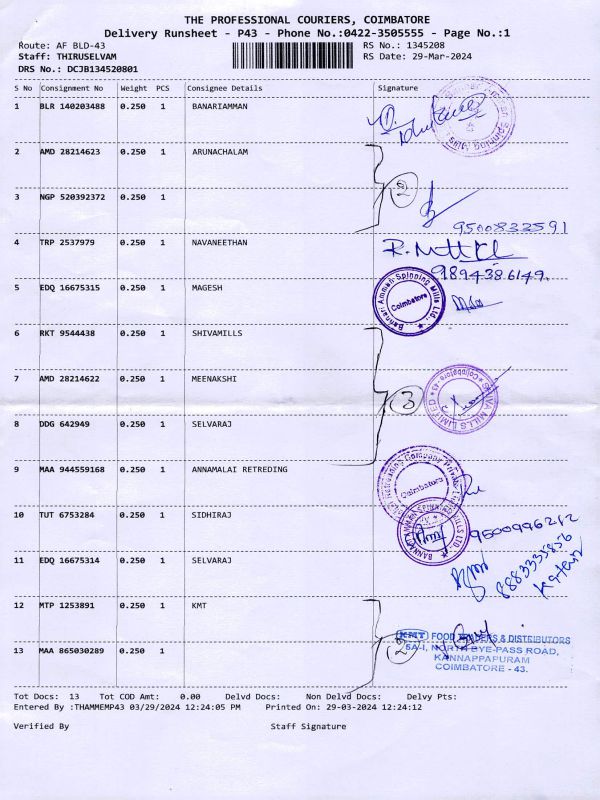 THE PROFESSIONAL COURIERS, COIMBATORE
Delivery Runsheet - P43 - Phone No.:0422-3505555 - Page No.:1
Route: AF BLD-43 RS No.: 1345208
Staff: THIRUSELVAM RS Date: 29-Mar-2024
DRS No.: DCJB134520801
S No Consignment No Weight PCS Consignee Details Signature
1 BLR 140203488 0.250 1 BANARIAMMAN
2 AMD 28214623 0.250 1 ARUNACHALAM
2
3 NGP 520392372 0.250 1
9500833591
4 TRP 2537979 0.250 1 NAVANEETHAN
9894386149.
5 EDQ 16675315 0.250 1 MAGESH
Bannari Amman Spinning Mills Ltd., Coimbatore
6 RKT 9544438 0.250 1 SHIVAMILLS
7 AMD 28214622 0.250 1 MEENAKSHI
3
SHIVA MILLS LIMITED Coimbatore - 43
8 DDG 642949 0.250 1 SELVARAJ
9 MAA 944559168 0.250 1 ANNAMALAI RETREDING
Coimbatore
10 TUT 6753284 0.250 1 SIDHIRAJ
9500996212
11 EDQ 16675314 0.250 1 SELVARAJ
8883335856
12 MTP 1253891 0.250 1 KMT
KMT FOOD TRADERS & DISTRIBUTORS
13 MAA 865030289 0.250 1
2
5A-I, NORTH BYE-PASS ROAD,
KANNAPPAPURAM
COIMBATORE - 43.
Tot Docs: 13 Tot COD Amt: 0.00 Delvd Docs: Non Delvd Docs: Delvy Pts:
Entered By :THAMMEMP43 03/29/2024 12:24:05 PM Printed On: 29-03-2024 12:24:12
Verified By Staff Signature